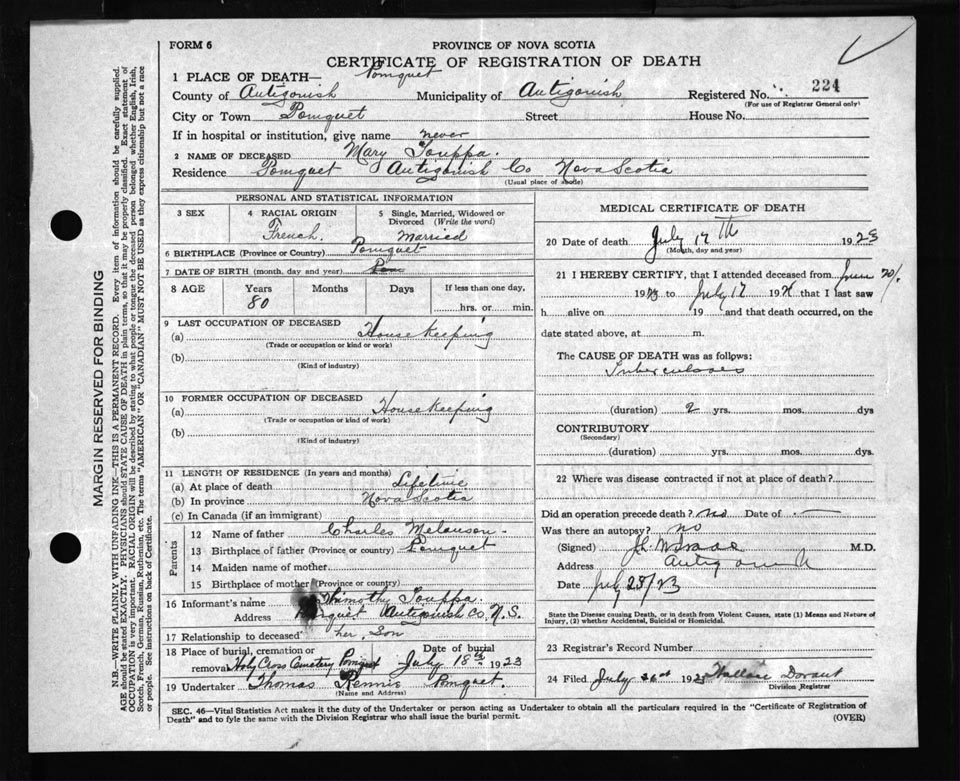 FORM 6
PROVINCE OF NOVA SCOTIA
CERTIFICATE OF REGISTRATION OF DEATH
1 PLACE OF DEATH— Pomquet
County of Antigonish Municipality of Antigonish Registered No. 224
(For use of Registrar General only)
City or Town Pomquet Street House No.
If in hospital or institution, give name never
2 NAME OF DECEASED Mary Touppa.
Residence Pomquet Antigonish Co Nova Scotia
(Usual place of abode)
PERSONAL AND STATISTICAL INFORMATION
3 SEX 4 RACIAL ORIGIN French. 5 Single, Married, Widowed or Divorced (Write the word) Married
6 BIRTHPLACE (Province or Country) Pomquet
7 DATE OF BIRTH (month, day and year)
8 AGE Years 80 Months Days If less than one day, hrs. or min.
9 LAST OCCUPATION OF DECEASED
(a) House Keeping
(Trade or occupation or kind or work)
(b)
(Kind of industry)
10 FORMER OCCUPATION OF DECEASED
(a) House Keeping
(Trade or occupation or kind of work)
(b)
(Kind of industry)
11 LENGTH OF RESIDENCE (In years and months)
(a) At place of death Lifetime
(b) In province Nova Scotia
(c) In Canada (if an immigrant)
Parents
12 Name of father Charles Melanson
13 Birthplace of father (Province or country) Pomquet
14 Maiden name of mother
15 Birthplace of mother (Province or country)
16 Informant's name Thimothy Touppa.
Address Pomquet Antigonish Co, N.S.
17 Relationship to deceased her, Son
18 Place of burial, cremation or removal Holy Cross Cemetery Pomquet Date of burial July 18th 1923
19 Undertaker Thomas Rennie Pomquet.
(Name and Address)
MEDICAL CERTIFICATE OF DEATH
20 Date of death July 17th 1923
(Month, day and year)
21 I HEREBY CERTIFY, that I attended deceased from June 20/.
1923 to July 17 192 that I last saw
h alive on 19 and that death occurred, on the
date stated above, at m.
The CAUSE OF DEATH was as follows:
Tuberculoses
(duration) 2 yrs. mos. dys
CONTRIBUTORY
(Secondary)
(duration) yrs. mos. dys.
22 Where was disease contracted if not at place of death?
Did an operation precede death? no Date of —
Was there an autopsy? no
(Signed) M.D.
Address Antigonish
Date July 23/23
State the Disease causing Death, or in death from Violent Causes, state (1) Means and Nature of
Injury, (2) whether Accidental, Suicidal or Homicidal.
23 Registrar's Record Number
24 Filed July 1923 Wallace Dorant
Division Registrar
SEC. 46—Vital Statistics Act makes it the duty of the Undertaker or person acting as Undertaker to obtain all the particulars required in the "Certificate of Registration of
Death" and to fyle the same with the Division Registrar who shall issue the burial permit.
(OVER)
MARGIN RESERVED FOR BINDING
N.B.—WRITE PLAINLY WITH UNFADING INK—THIS IS A PERMANENT RECORD. Every item of information should be carefully supplied.
AGE should be stated EXACTLY. PHYSICIANS should STATE CAUSE OF DEATH in plain terms, so that it may be properly classified. Exact statement of
OCCUPATION is very important. RACIAL ORIGIN will be described by stating to what people or tongue the deceased person belonged whether English, Irish,
Scotch, French, German, Russian, Ruthenian, etc. The terms "AMERICAN" or "CANADIAN" MUST NOT BE USED as they express citizenship but not a race
or people. See instructions on back of Certificate.